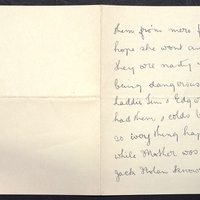 them from mere f
hope she wont an
they are nasty
being dangerous
laddie Jim & Edg
had them & colds b
so everything hap
while Mother was
Jack Nolan